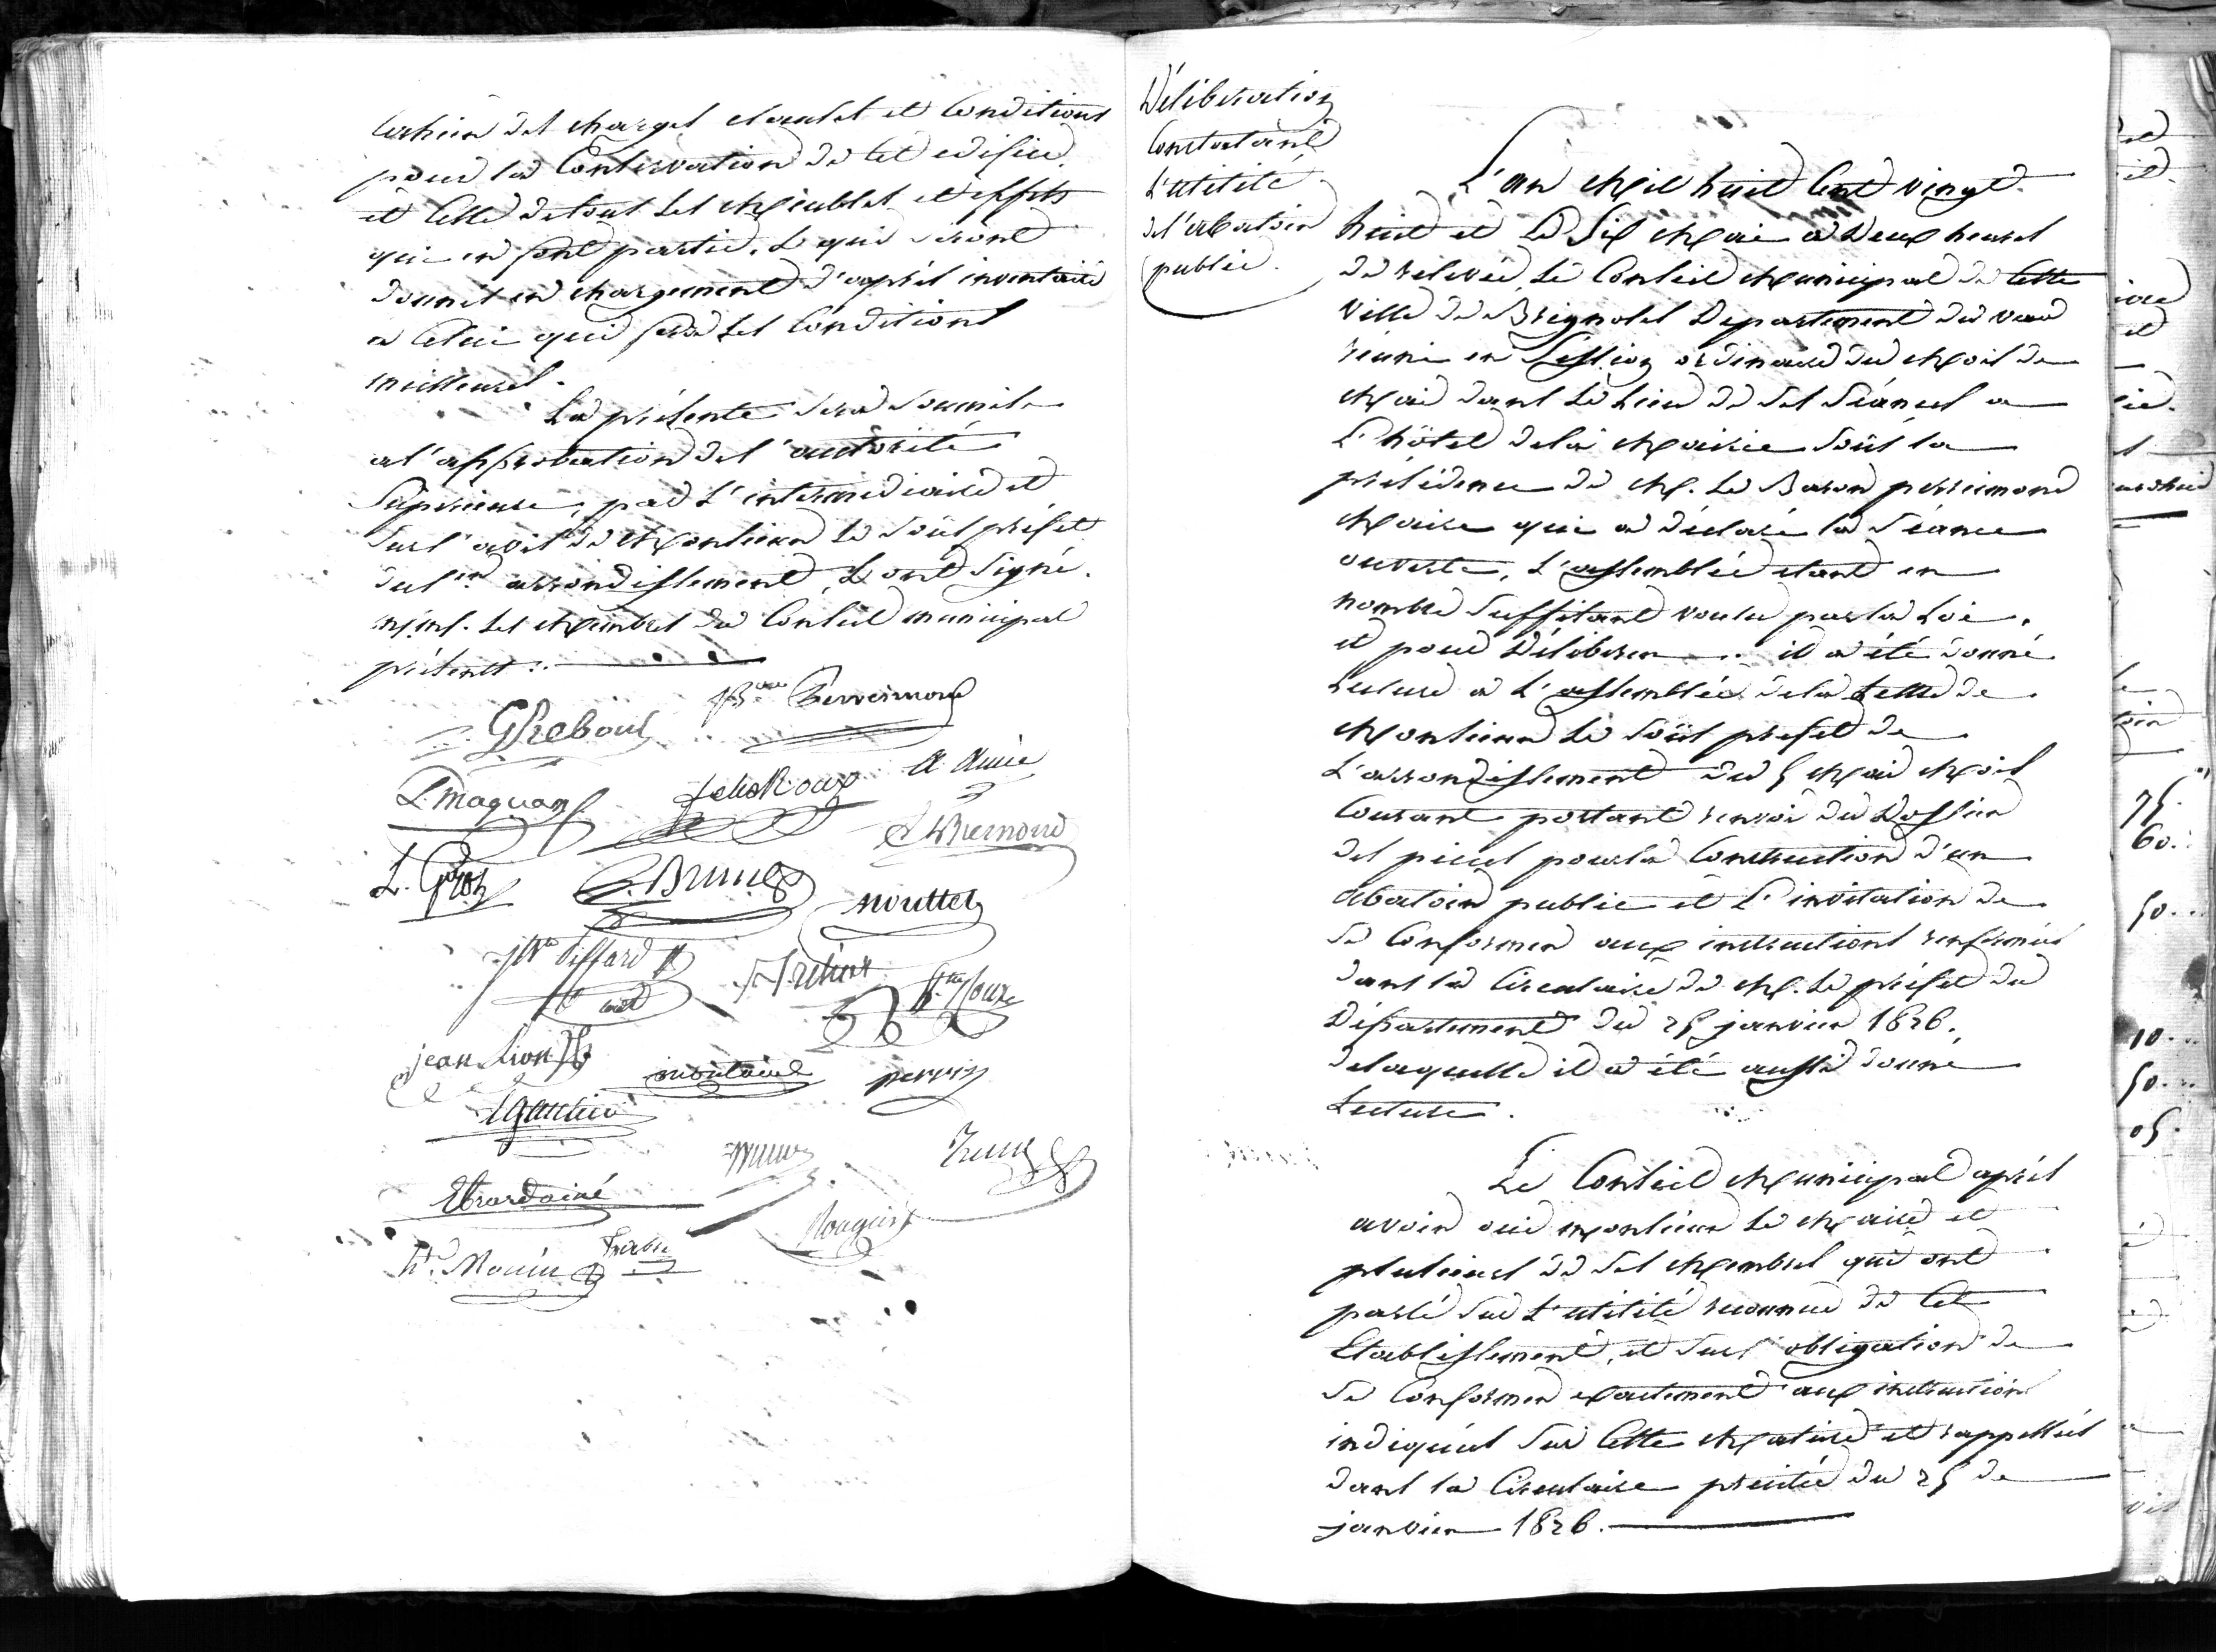 Cahier des charges clauses et Conditions
pour la Conservation de cet edifice.
et Celle de tous les Meubles et effets
qui en font partie. & qui seront
donnés en chargement d'après inventaire
a Celui qui fera les Conditions
meilleures.
La présente sera soumise
a l'approbation de l'autorité
Supérieure, par l'intermédiaire et
sur l'avis de Monsieur le Sous préfet
de l'arrondissement, & ont Signé.
MM. les Membres du Conseil municipal
présents :.
Bon Perreimond
G Reboul
A Amic
L. Maquan
felix Roux
Bremond
L. Guion
Brunes
nouttet
Jh Siffard
Trehier
Roux
jean Lion
montaine
perrin
Lgautier
Ebrard ainé
Rougiers
hte Mouin
Délibération
Constatant
L'utilité
de l'abatoir
public.
L'an Mil huit Cent vingt
huit et le Six Mai a deux heures
de relevée, Le Conseil Municipal de Cette
ville de Brignoles Departement du var
réuni en Session ordinaire du Mois de
Mai dans le Lieu de ses Séances a
L'hôtel de la Mairie sous la
présidence de M. Le Baron perreimond
Maire qui a déclaré la Séance
ouverte, L'assemblée étant en
nombre Suffisant voulu par la Loi.
et pour Délibérer .. il a été donné
Lecture a L'assemblée de la Lettre de
Monsieur Le Sous prefet de
L'arrondissement du 5 Mai Mois
Courant portant renvoi du Dossier
des pieces pour la Construction d'un
abatoir public et L'invitation de
se Conformer aux instructions renfermées
dans la Circulaire de M. Le préfet du
Département du 25 janvier 1826.
de laquelle il a été aussi donné
Lecture.
Le Conseil Municipal après
avoir oui Monsieur le Maire et
plusieurs de ses Membres qui ont
parlé sur L'utilité reconnue de Cet
Etablissement, et sur l'obligation de
se Conformer exactement aux instructions
indiquées sur Cette Matiere et rappellées
dans la Circulaire précitée du 25 de
janvier 1826.
75.
60.
50...
10...
50...
05.